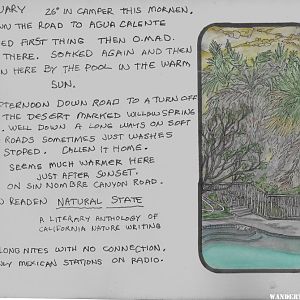 UARY 26° IN CAMPER THIS MORNEN.
WN THE ROAD TO AGUA CALENTE
ED FIRST THING THEN O.M.A.D.
THERE. SOAKED AGAIN AND THEN
N HERE BY THE POOL IN THE WARM
SUN.
FTERNOON DOWN ROAD TO A TURN OFF
THE DESERT MARKED WILLOW SPRING
WELL DOWN A LONG WAYS ON SOFT
ROADS SOMETIMES JUST WASHES
STOPED. CALLEN IT HOME.
SEEMS MUCH WARMER HERE
JUST AFTER SUNSET.
ON SIN NOMBRE CANYON ROAD.
N READEN NATURAL STATE
A LITERARY ANTHOLOGY OF
CALIFORNIA NATURE WRITING
LONG NITES WITH NO CONNECTION,
NLY MEXICAN STATIONS ON RADIO.
WANDER